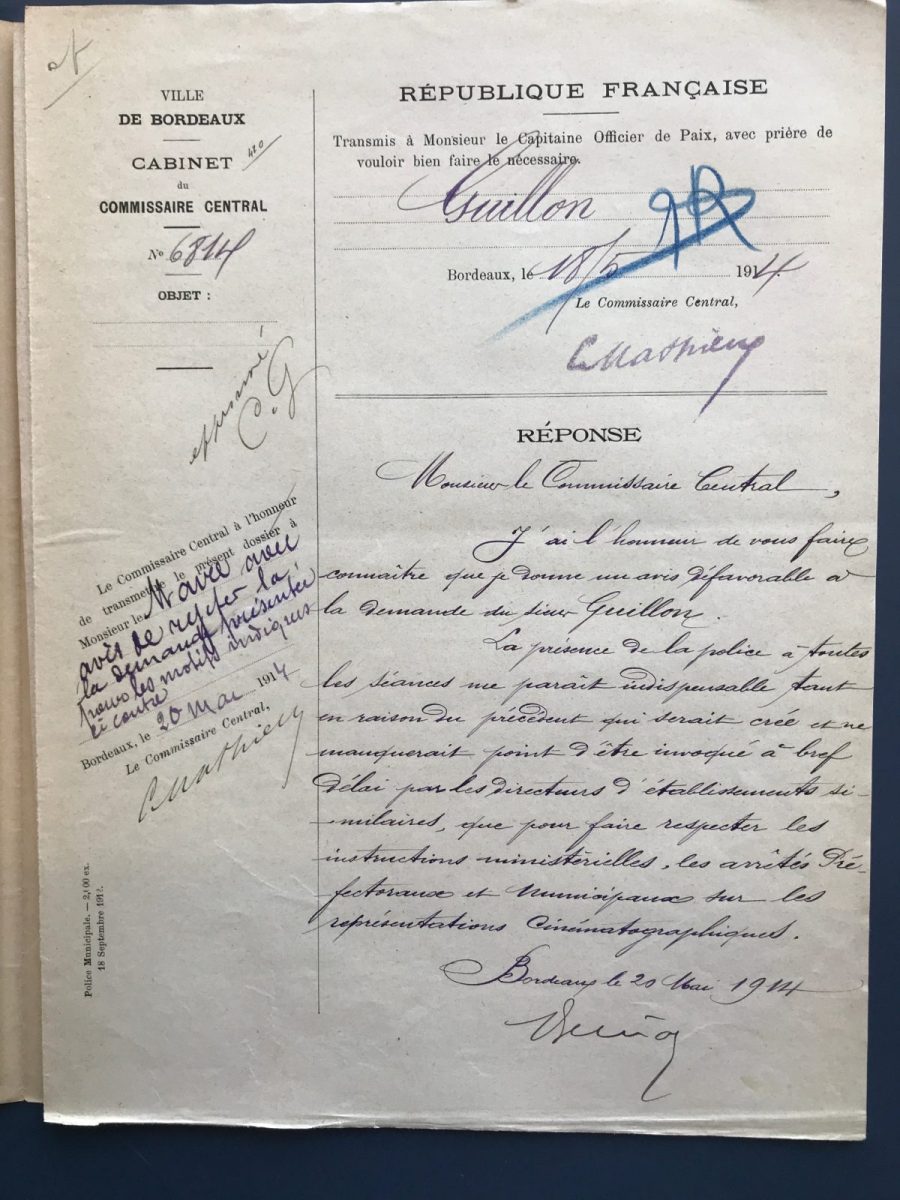 VILLE
DE BORDEAUX
CABINET
du
COMMISSAIRE CENTRAL
No 6814
OBJET :
approuvé
C.G
Le Commissaire Central à l'honneur
de transmettre le présent dossier à
Monsieur le Maire avec
avis de rejeter la
demande présentée
pour les motifs indiqués
ci contre
Bordeaux, le 20 Mai 1914
Le Commissaire Central,
CMathieu
Police Municipale. — 2,000 ex.
18 Septembre 1912.
RÉPUBLIQUE FRANÇAISE
Transmis à Monsieur le Capitaine Officier de Paix, avec prière de
vouloir bien faire le nécessaire.
Guillon
Bordeaux, le 18/5 1914
Le Commissaire Central,
CMathieu
RÉPONSE
Monsieur le Commissaire Central,
J'ai l'honneur de vous faire
connaître que je donne un avis défavorable à
la demande du sieur Guillon.
La présence de la police à toutes
les séances me paraît indispensable tant
en raison du précédent qui serait créé et ne
manquerait point d'être invoqué à bref
délai par les directeurs d'établissements si-
-milaires, que pour faire respecter les
instructions ministérielles, les arrêtés Pré-
fectoraux et Municipaux sur les
représentations Cinématographiques.
Bordeaux le 20 Mai 1914